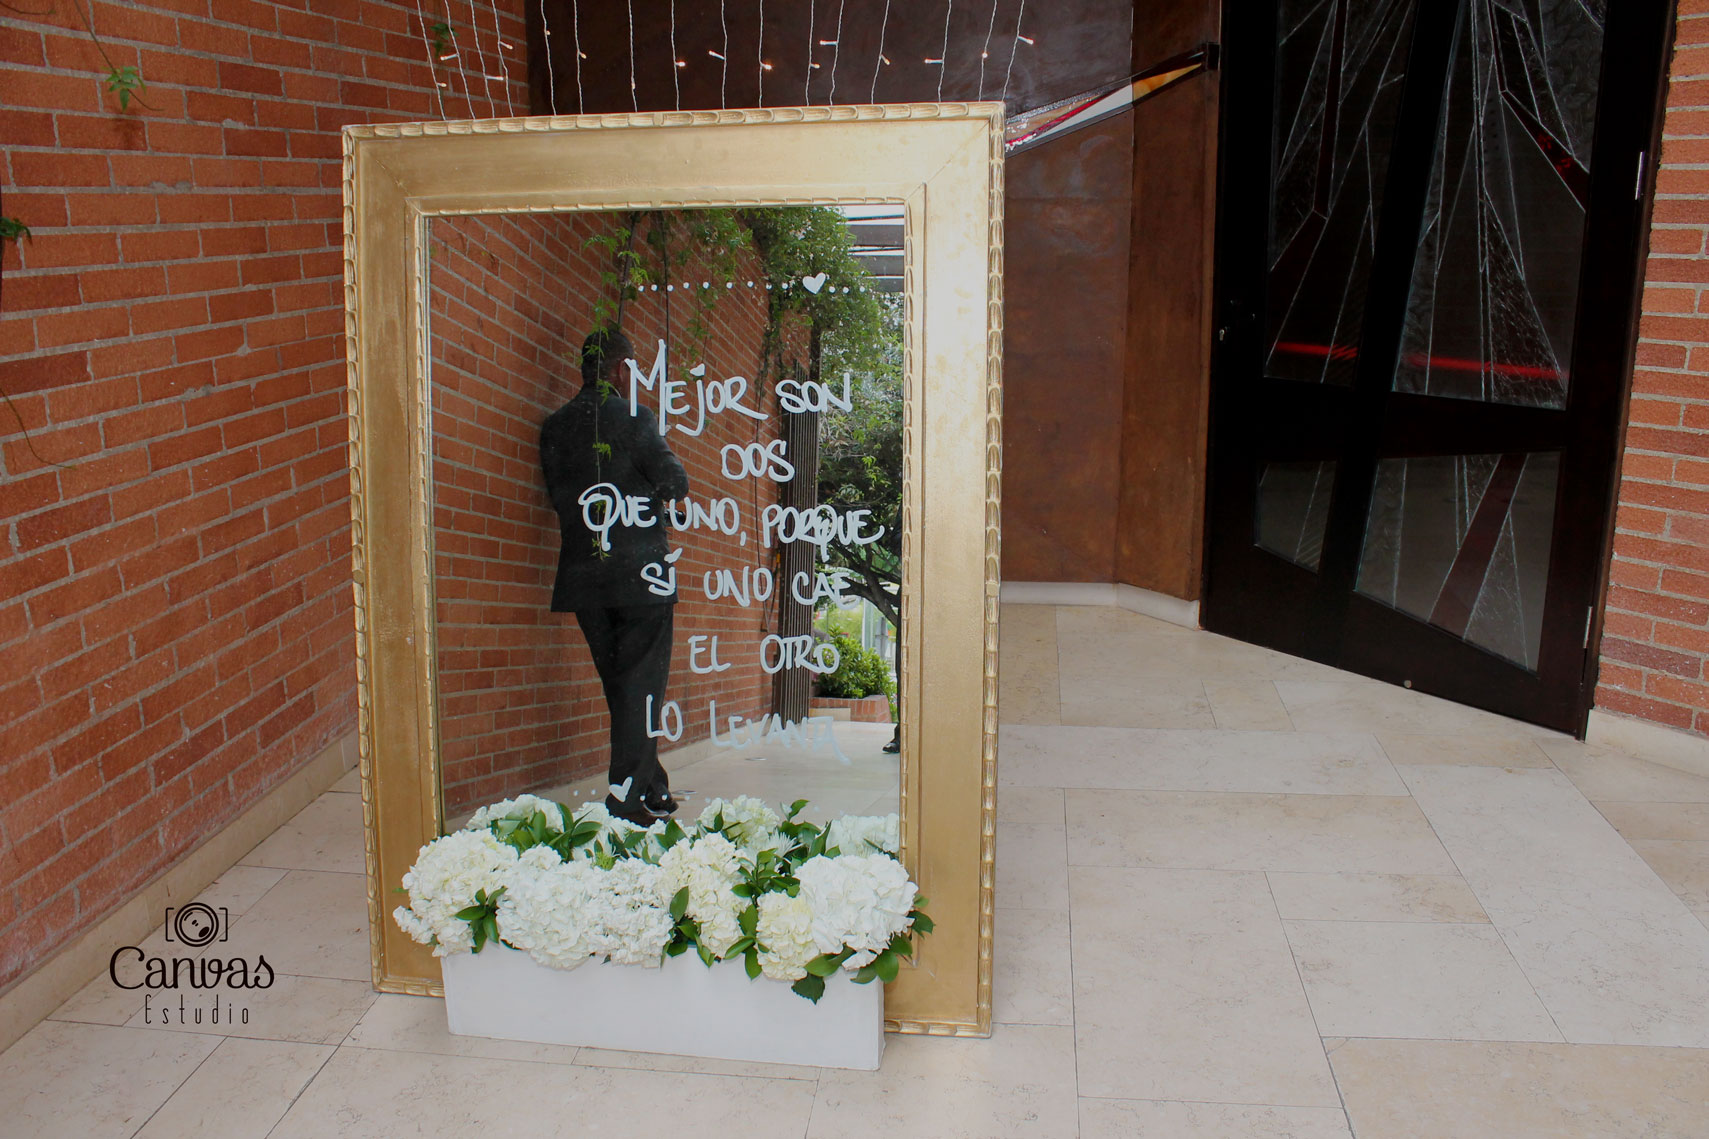 Mejor son
dos
que uno, porque
sí uno cae
el otro
lo levanta
Canvas
Estudio